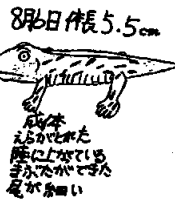 8月6日 体長5.5cm
成体
えらがとれた
陸に上がている
まぶたができた
尾が細い